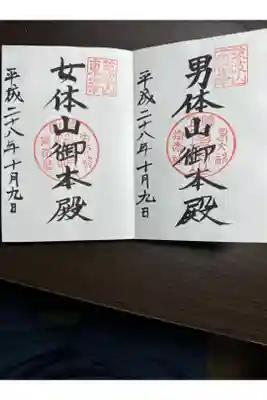 男体山御本殿
平成二十八年十月九日
女体山御本殿
平成二十八年十月九日